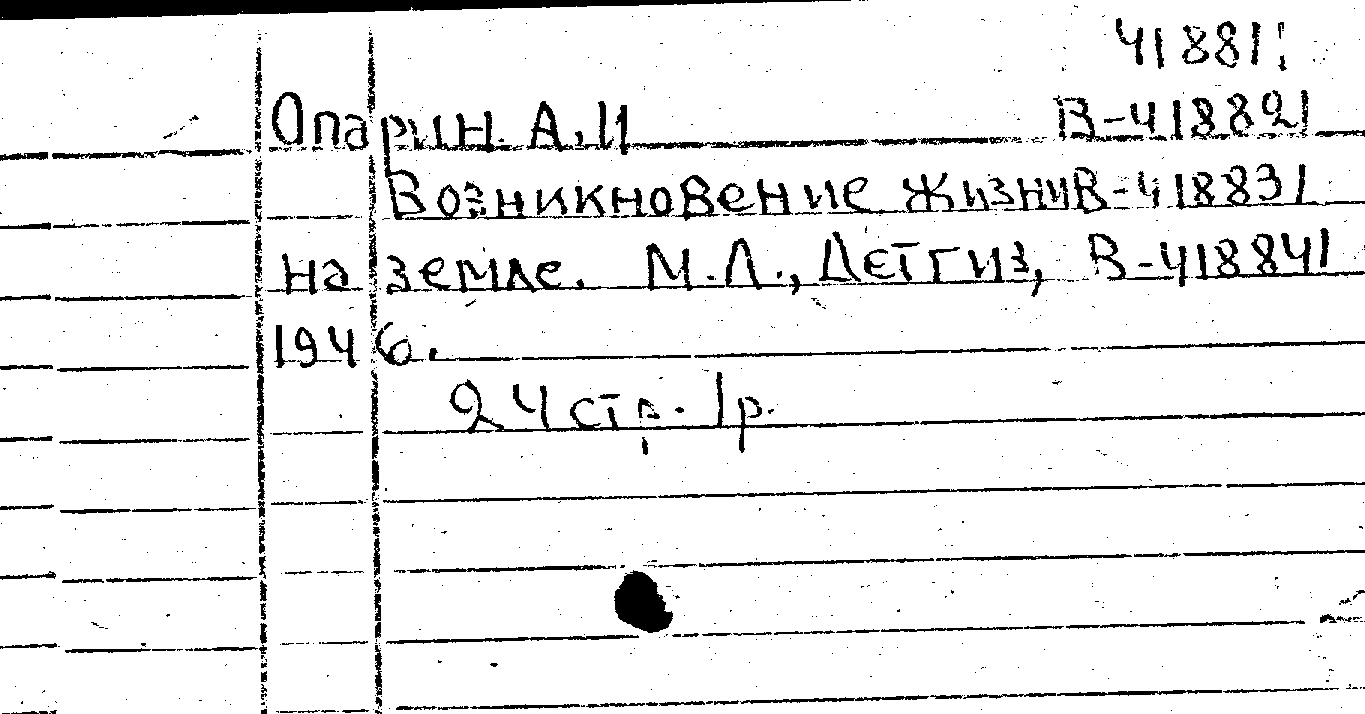 41881
Опарин А.И В-418821
Возникновение жизни В-418831
на земле. М.Л., Детгиз, В-418841
1946.
24 стр. 1р.